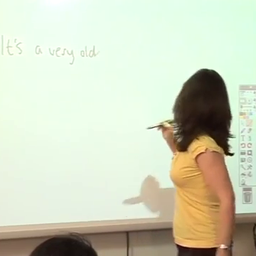 It's a very old